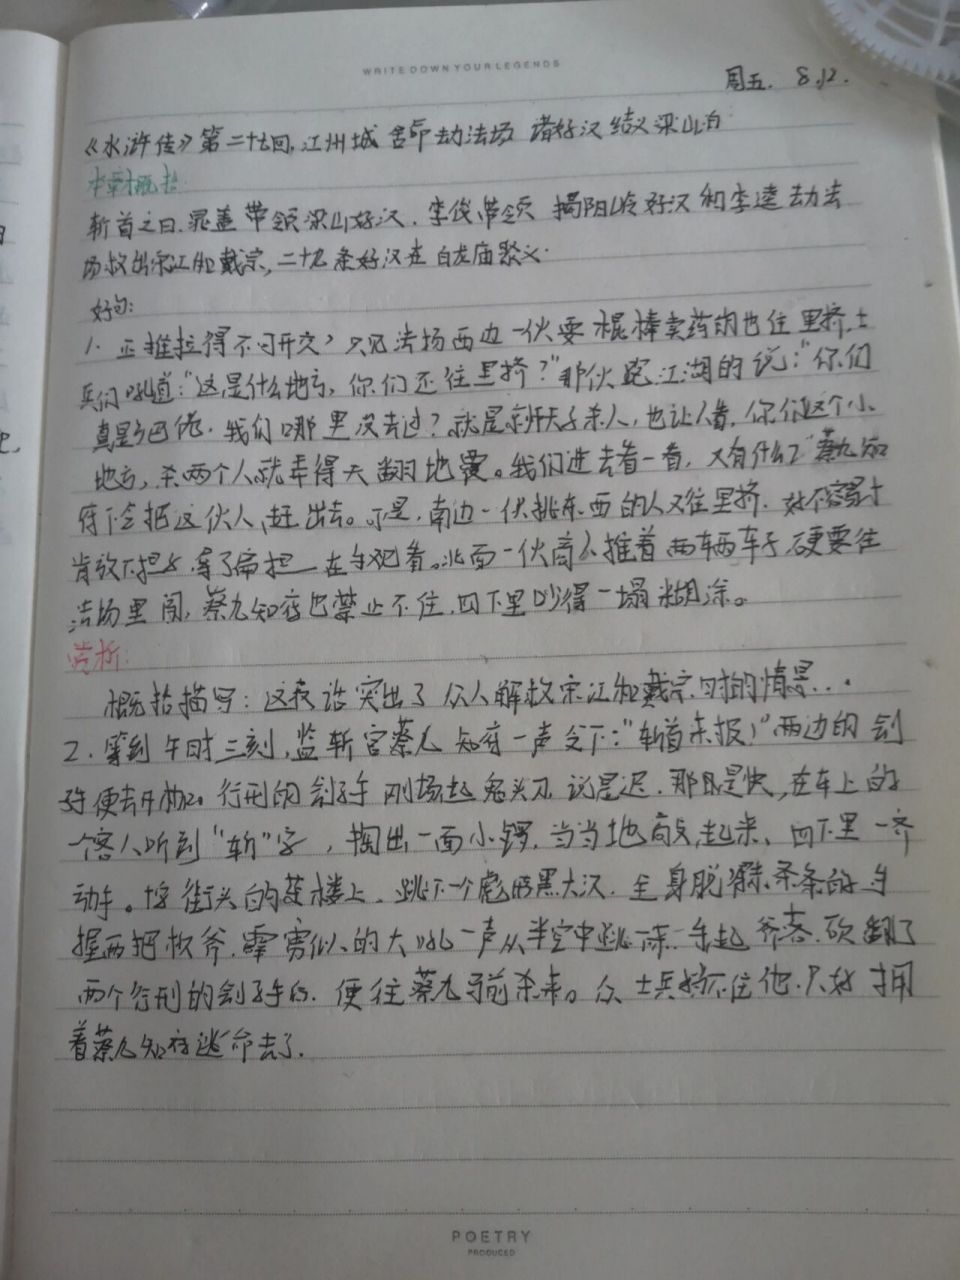 WRITE DOWN YOUR LEGENDS
周五. 8.12.
《水浒传》第二十七回,江州城 舍命劫法场 诸好汉结义梁山泊
本章概括:
斩首之日.晁盖 带领梁山好汉.李俊带领 揭阳岭好汉和李逵 劫法
场救出宋江和戴宗,二十九条好汉在白龙庙聚义.
好句:
1. 正推拉得不可开交,只见法场西边一伙耍棍棒卖药的也往里挤.士
兵们吼道:"这是什么地方,你们还往里挤?"那伙跑江湖的说:"你们
真是 我们哪里没去过?就是京师天子杀人,也让人看,你们这个小
地方,杀两个人就弄得天翻地覆。我们进去看一看,又有什么?"蔡九知
府下令把这伙人赶出去。于是,南边一伙挑东西的人又往里挤.好不容易才
肯放下担子 扁担 在手观看。北面一伙商人推着两辆车子,硬要往
法场里闯,蔡九知府已禁止不住,四下里吵得一塌糊涂。
赏析:
概括描写:这段话突出了众人解救宋江和戴宗时的情景...
2.等到午时三刻,监斩官蔡九知府一声令下:"斩首来报!"两边的刽
子手便去开枷。行刑的刽子手刚扬起鬼头刀 说是迟.那时是快,在车上的
一客人听到"斩"字,掏出一面小锣.当当地敲起来、四下里一齐
动手。 街头的茶楼上.跳下一个彪形黑大汉.全身脱得赤条条的 手
握两把板斧.霹雳似的大吼一声从半空中跳下来.手起斧落.砍翻了
两个行刑的刽子手. 便往蔡九 前杀来。众士兵挡不住他.只好拥
着蔡九知府逃命去了.
POETRY
PRODUCED